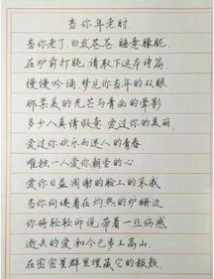 当你年老时
当你老了,白发苍苍,睡意朦胧,
在炉前打盹,请取下这本诗篇
慢慢吟诵,梦见你当年的双眼
那柔美的光芒与青幽的晕影
多少人真情假意,爱过你的美丽
爱过你欢乐而迷人的青春
唯独一人爱你朝圣的心
爱你日益凋谢的脸上的哀戚
当你佝偻着在灼热的炉栅边
你将轻轻诉说,带着一丝伤感
逝去的爱如今已步上高山,
在密密星群里埋藏它的赧颜